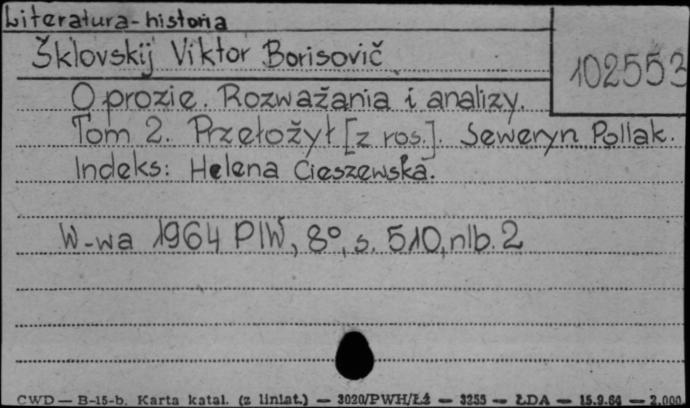 Literatura-historia
Šklovskij Viktor Borisovič
102553
O prozie. Rozważania i analizy.
Tom 2. Przełożył [z ros.]. Seweryn Pollak.
Indeks: Helena Cieszewska.
W-wa 1964 PIW, 8°, s. 510, nlb. 2
CWD — B-15-b. Karta katal. (z liniat.) — 3020/PWH/Łż — 3255 — ŁDA — 15.9.64 — 2.000